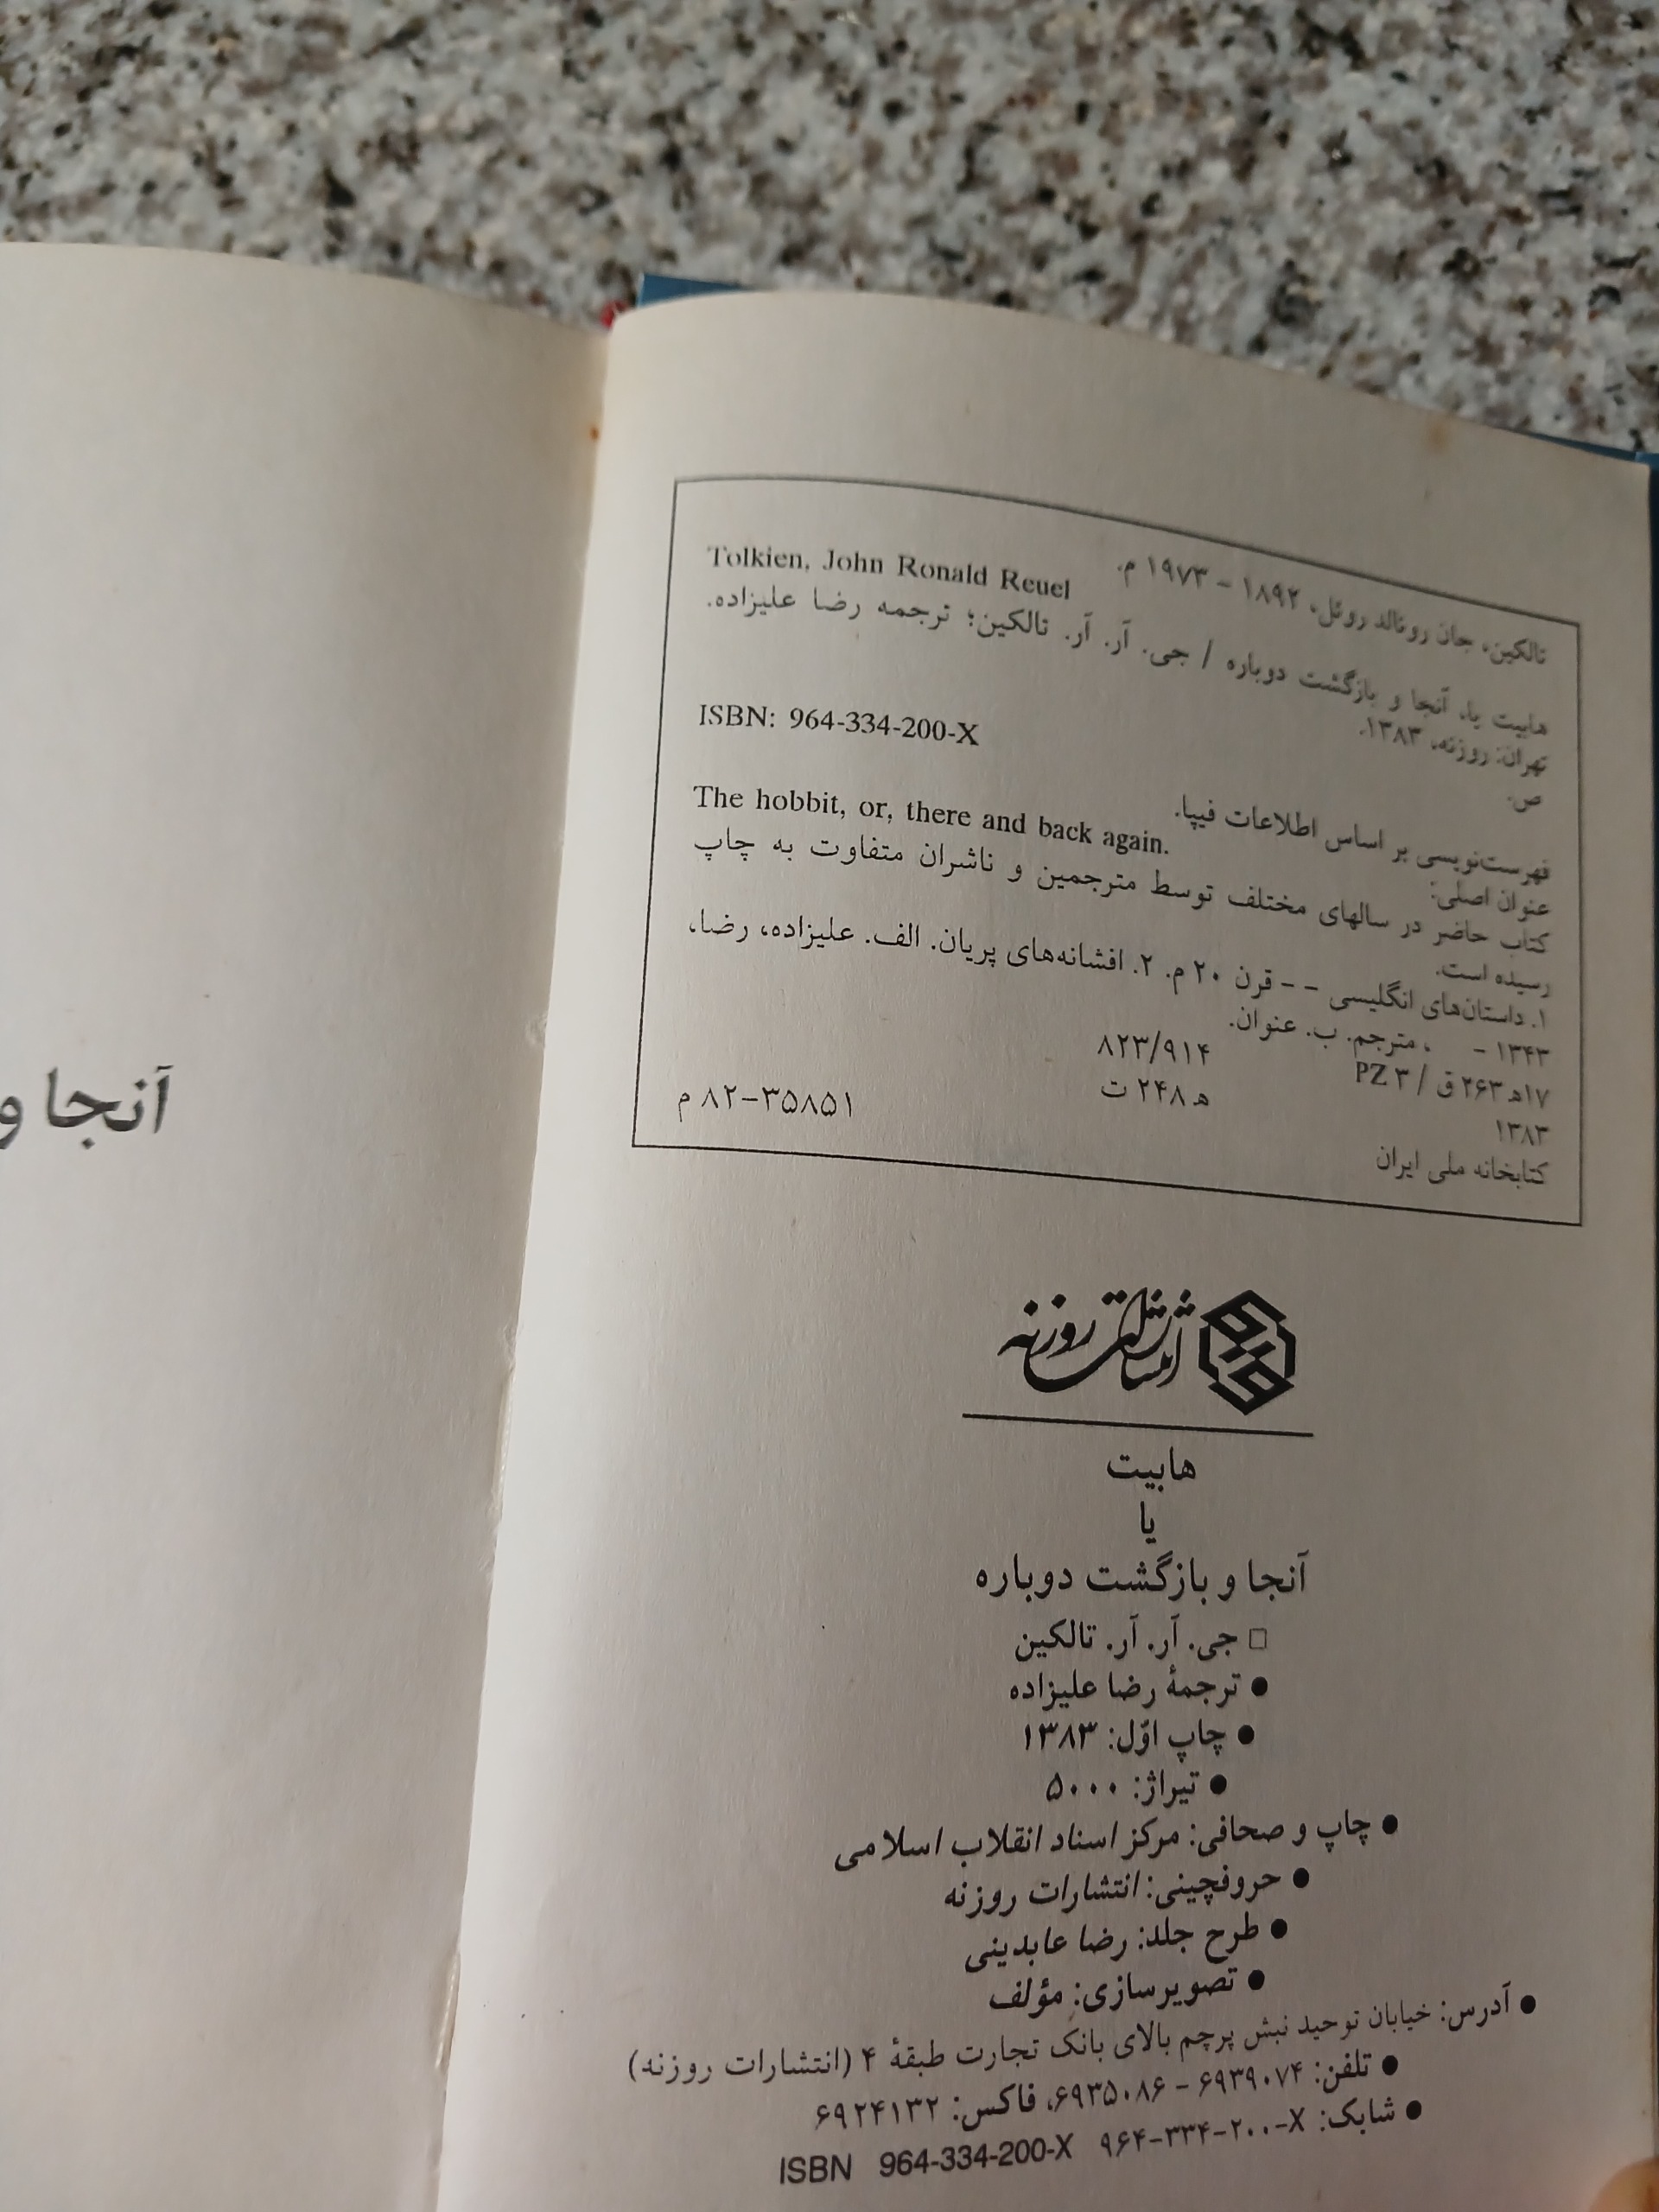 تالکین، جان رونالد روئل، ۱۸۹۲ - ۱۹۷۳ م. Tolkien, John Ronald Reuel
هابیت یا، آنجا و بازگشت دوباره / جی. آر. آر. تالکین؛ ترجمه رضا علیزاده.
تهران: روزنه، ۱۳۸۳.
ص. ISBN: 964-334-200-X
فهرست‌نویسی بر اساس اطلاعات فیپا.
عنوان اصلی: The hobbit, or, there and back again.
کتاب حاضر در سالهای مختلف توسط مترجمین و ناشران متفاوت به چاپ
رسیده است.
۱. داستان‌های انگلیسی - - قرن ۲۰ م. ۲. افشانه‌های پریان. الف. علیزاده، رضا،
۱۳۴۳ - ، مترجم. ب. عنوان.
۱۷ه ۲۶۳ ق / PZ ۳ ۸۲۳/۹۱۴
۱۳۸۳ ه ۲۴۸ ت
کتابخانه ملی ایران ۸۲-۳۵۸۵۱ م
انتشارات روزنه
هابیت
یا
آنجا و بازگشت دوباره
□ جی. آر. آر. تالکین
● ترجمهٔ رضا علیزاده
● چاپ اوّل: ۱۳۸۳
● تیراژ: ۵۰۰۰
● چاپ و صحافی: مرکز اسناد انقلاب اسلامی
● حروفچینی: انتشارات روزنه
● طرح جلد: رضا عابدینی
● تصویرسازی: مؤلف
● آدرس: خیابان توحید نبش پرچم بالای بانک تجارت طبقهٔ ۴ (انتشارات روزنه)
● تلفن: ۶۹۳۹۰۷۴ - ۶۹۳۵۰۸۶، فاکس: ۶۹۲۴۱۳۲
● شابک: X-۹۶۴-۳۳۴-۲۰۰ ISBN 964-334-200-X
آنجا و